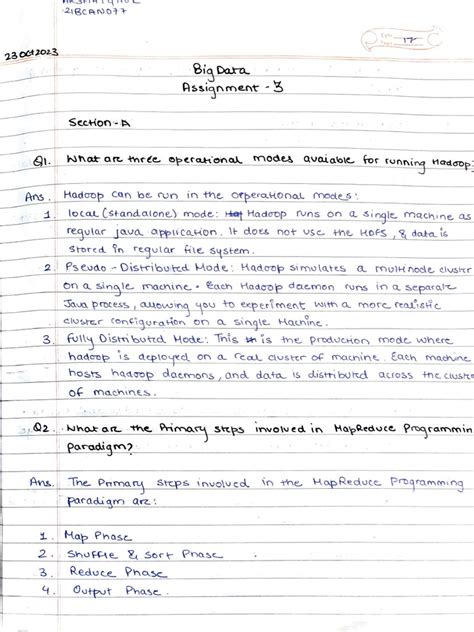 21BCAN077
17
23 Oct 2023
Big Data
Assignment - 3
Section - A
Q1. What are three operational modes avaiable for running Hadoop?
Ans. Hadoop can be run in the operational modes:
1. local (standalone) mode: Hadoop runs on a single machine as
regular java application. It does not use the HDFS, & data is
stored in regular file system.
2. Pseudo - Distributed Mode: Hadoop simulates a multinode cluster
on a single machine. Each Hadoop daemon runs in a separate
Java process, allowing you to experiment with a more realistic
cluster configuration on a single Machine.
3. Fully Distributed Mode: This is the production mode where
hadoop is deployed on a real cluster of machine. Each machine
hosts hadoop daemons, and data is distributed across the cluster
of machines.
Q2. What are the Primary steps involved in MapReduce Programmin
paradigm?
Ans. The Primary steps involved in the MapReduce Programming
paradigm are:
1. Map Phase
2. Shuffle & Sort Phase
3. Reduce Phase
4. Output Phase.